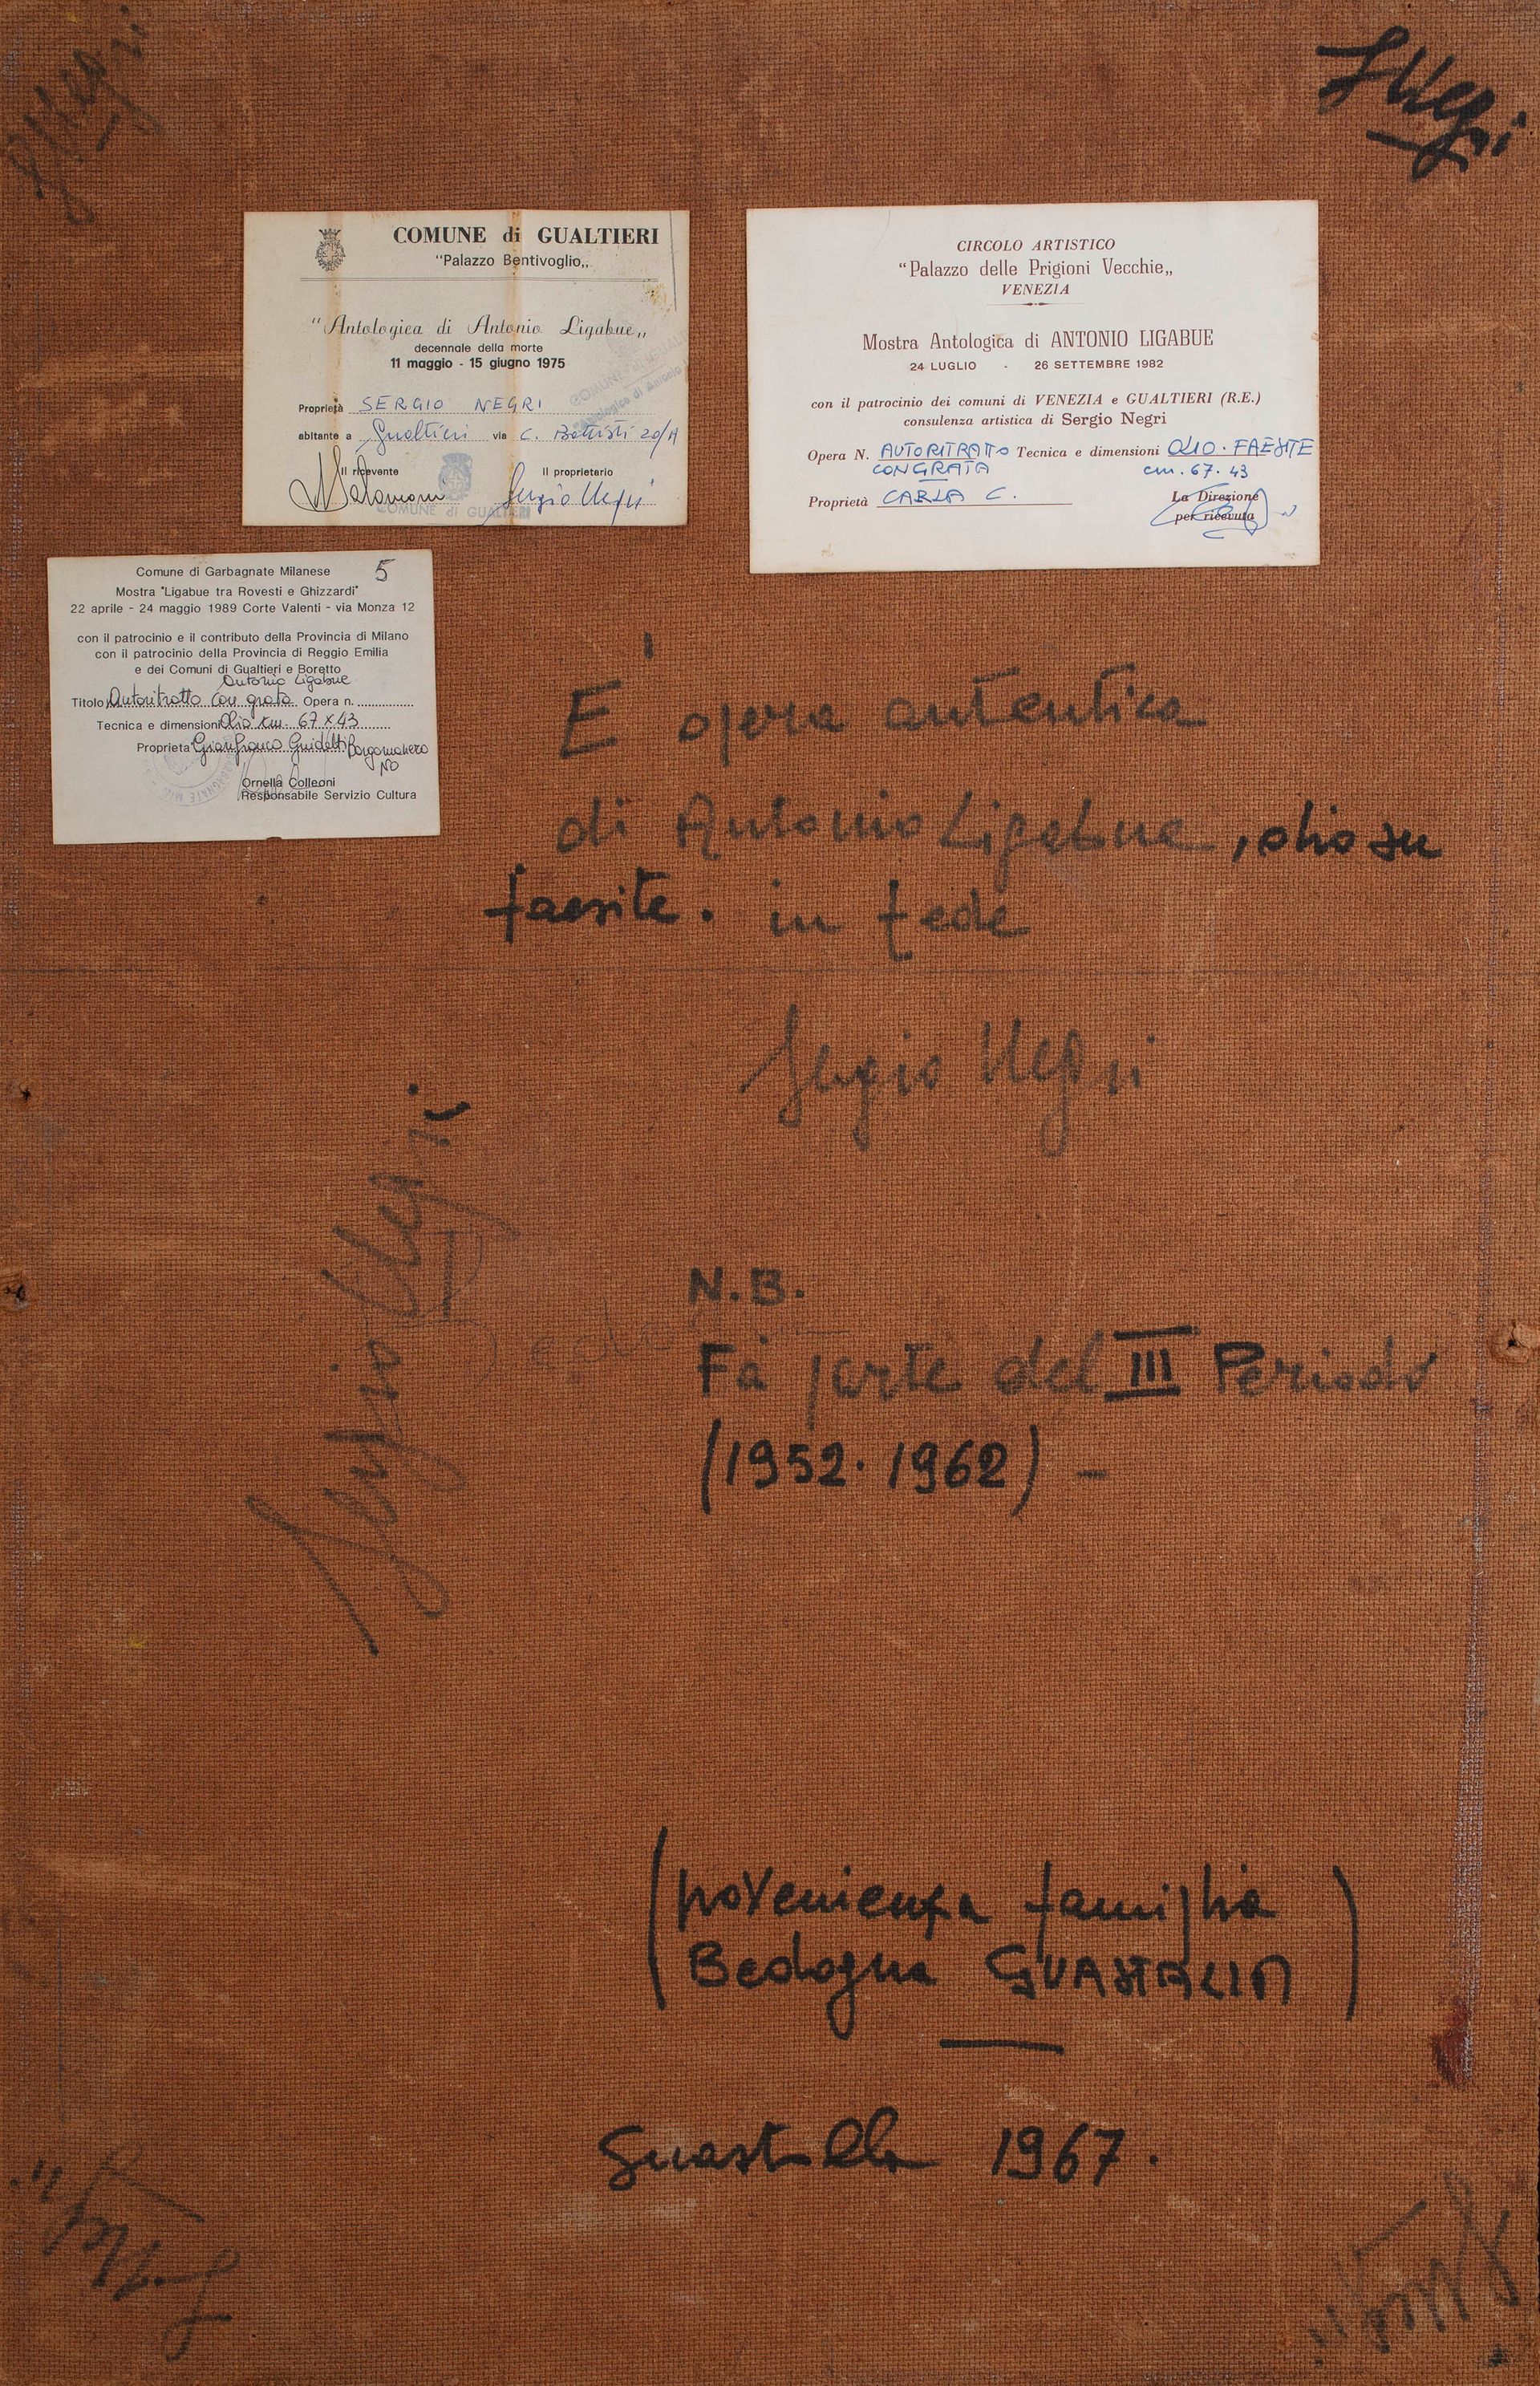 SNegri
SNegri
COMUNE di GUALTIERI
"Palazzo Bentivoglio„
"Antologica di Antonio Ligabue„
decennale della morte
11 maggio - 15 giugno 1975
Proprietà SERGIO NEGRI
abitante a Gualtieri via C. Battisti 20/A
Il ricevente Il proprietario
Sergio Negri
COMUNE di GUALTIERI
CIRCOLO ARTISTICO
"Palazzo delle Prigioni Vecchie„
VENEZIA
Mostra Antologica di ANTONIO LIGABUE
24 LUGLIO - 26 SETTEMBRE 1982
con il patrocinio dei comuni di VENEZIA e GUALTIERI (R.E.)
consulenza artistica di Sergio Negri
Opera N. AUTORITRATTO Tecnica e dimensioni OLIO. FAESITE
CON GRATA cm. 67. 43
Proprietà CARLA C. La Direzione
per ricevuta
Comune di Garbagnate Milanese 5
Mostra "Ligabue tra Rovesti e Ghizzardi"
22 aprile - 24 maggio 1989 Corte Valenti - via Monza 12
con il patrocinio e il contributo della Provincia di Milano
con il patrocinio della Provincia di Reggio Emilia
e dei Comuni di Gualtieri e Boretto
Antonio Ligabue
Titolo Autoritratto con grata Opera n.
Tecnica e dimensioni Olio cm. 67x43
Proprieta Gianfranco Guidetti Borgomanero
NO
Ornella Colleoni
Responsabile Servizio Cultura
È opera autentica
di Antonio Ligabue, olio su
faesite. in fede
Sergio Negri
Sergio Negri
N.B.
Fa parte del III Periodo
(1952. 1962) -
(provenienza famiglia
Bedogna GUASTALLA)
Guastalla 1967.
SNegri
SNegri